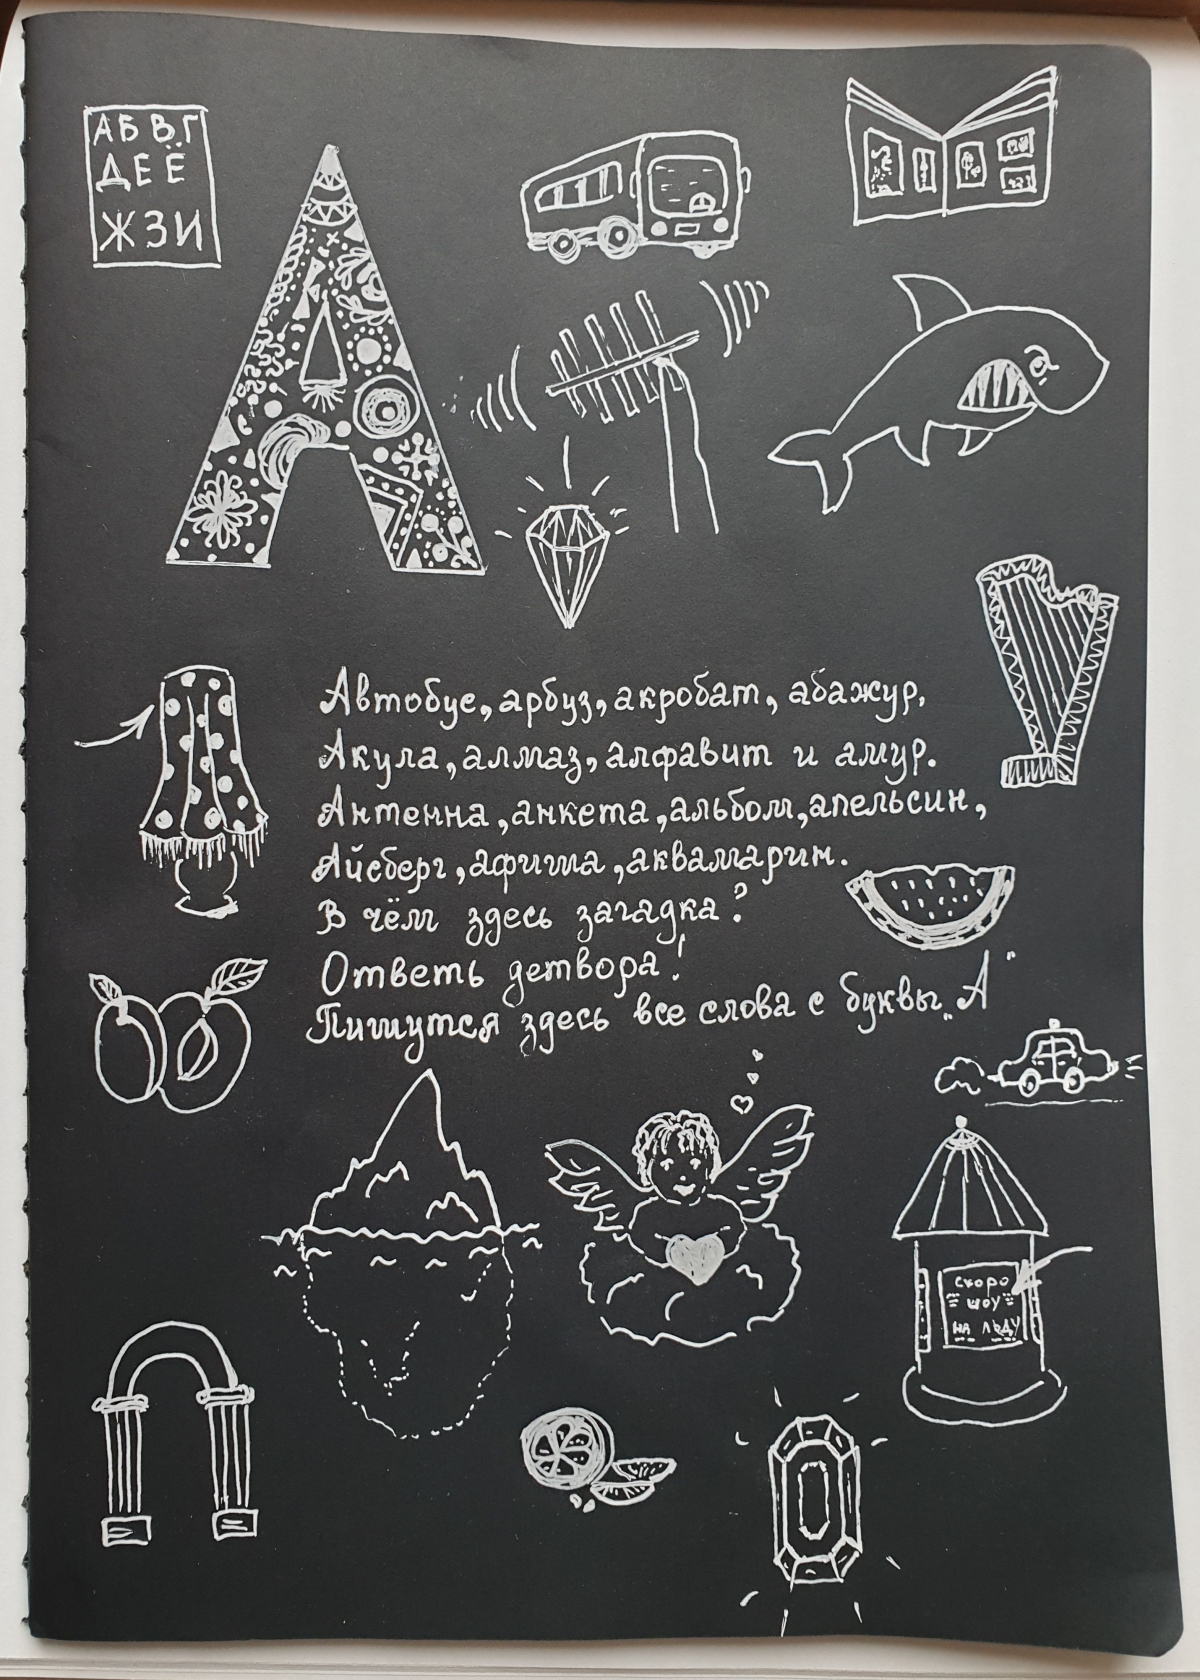 АБВГ
ДЕЁ
ЖЗИ
А
Автобус, арбуз, акробат, абажур,
Акула, алмаз, алфавит и амур.
Антенна, анкета, альбом, апельсин,
Айсберг, афиша, аквамарин.
В чём здесь загадка?
Ответь детвора!
Пишутся здесь все слова с буквы „А"
скоро
шоу
на льду